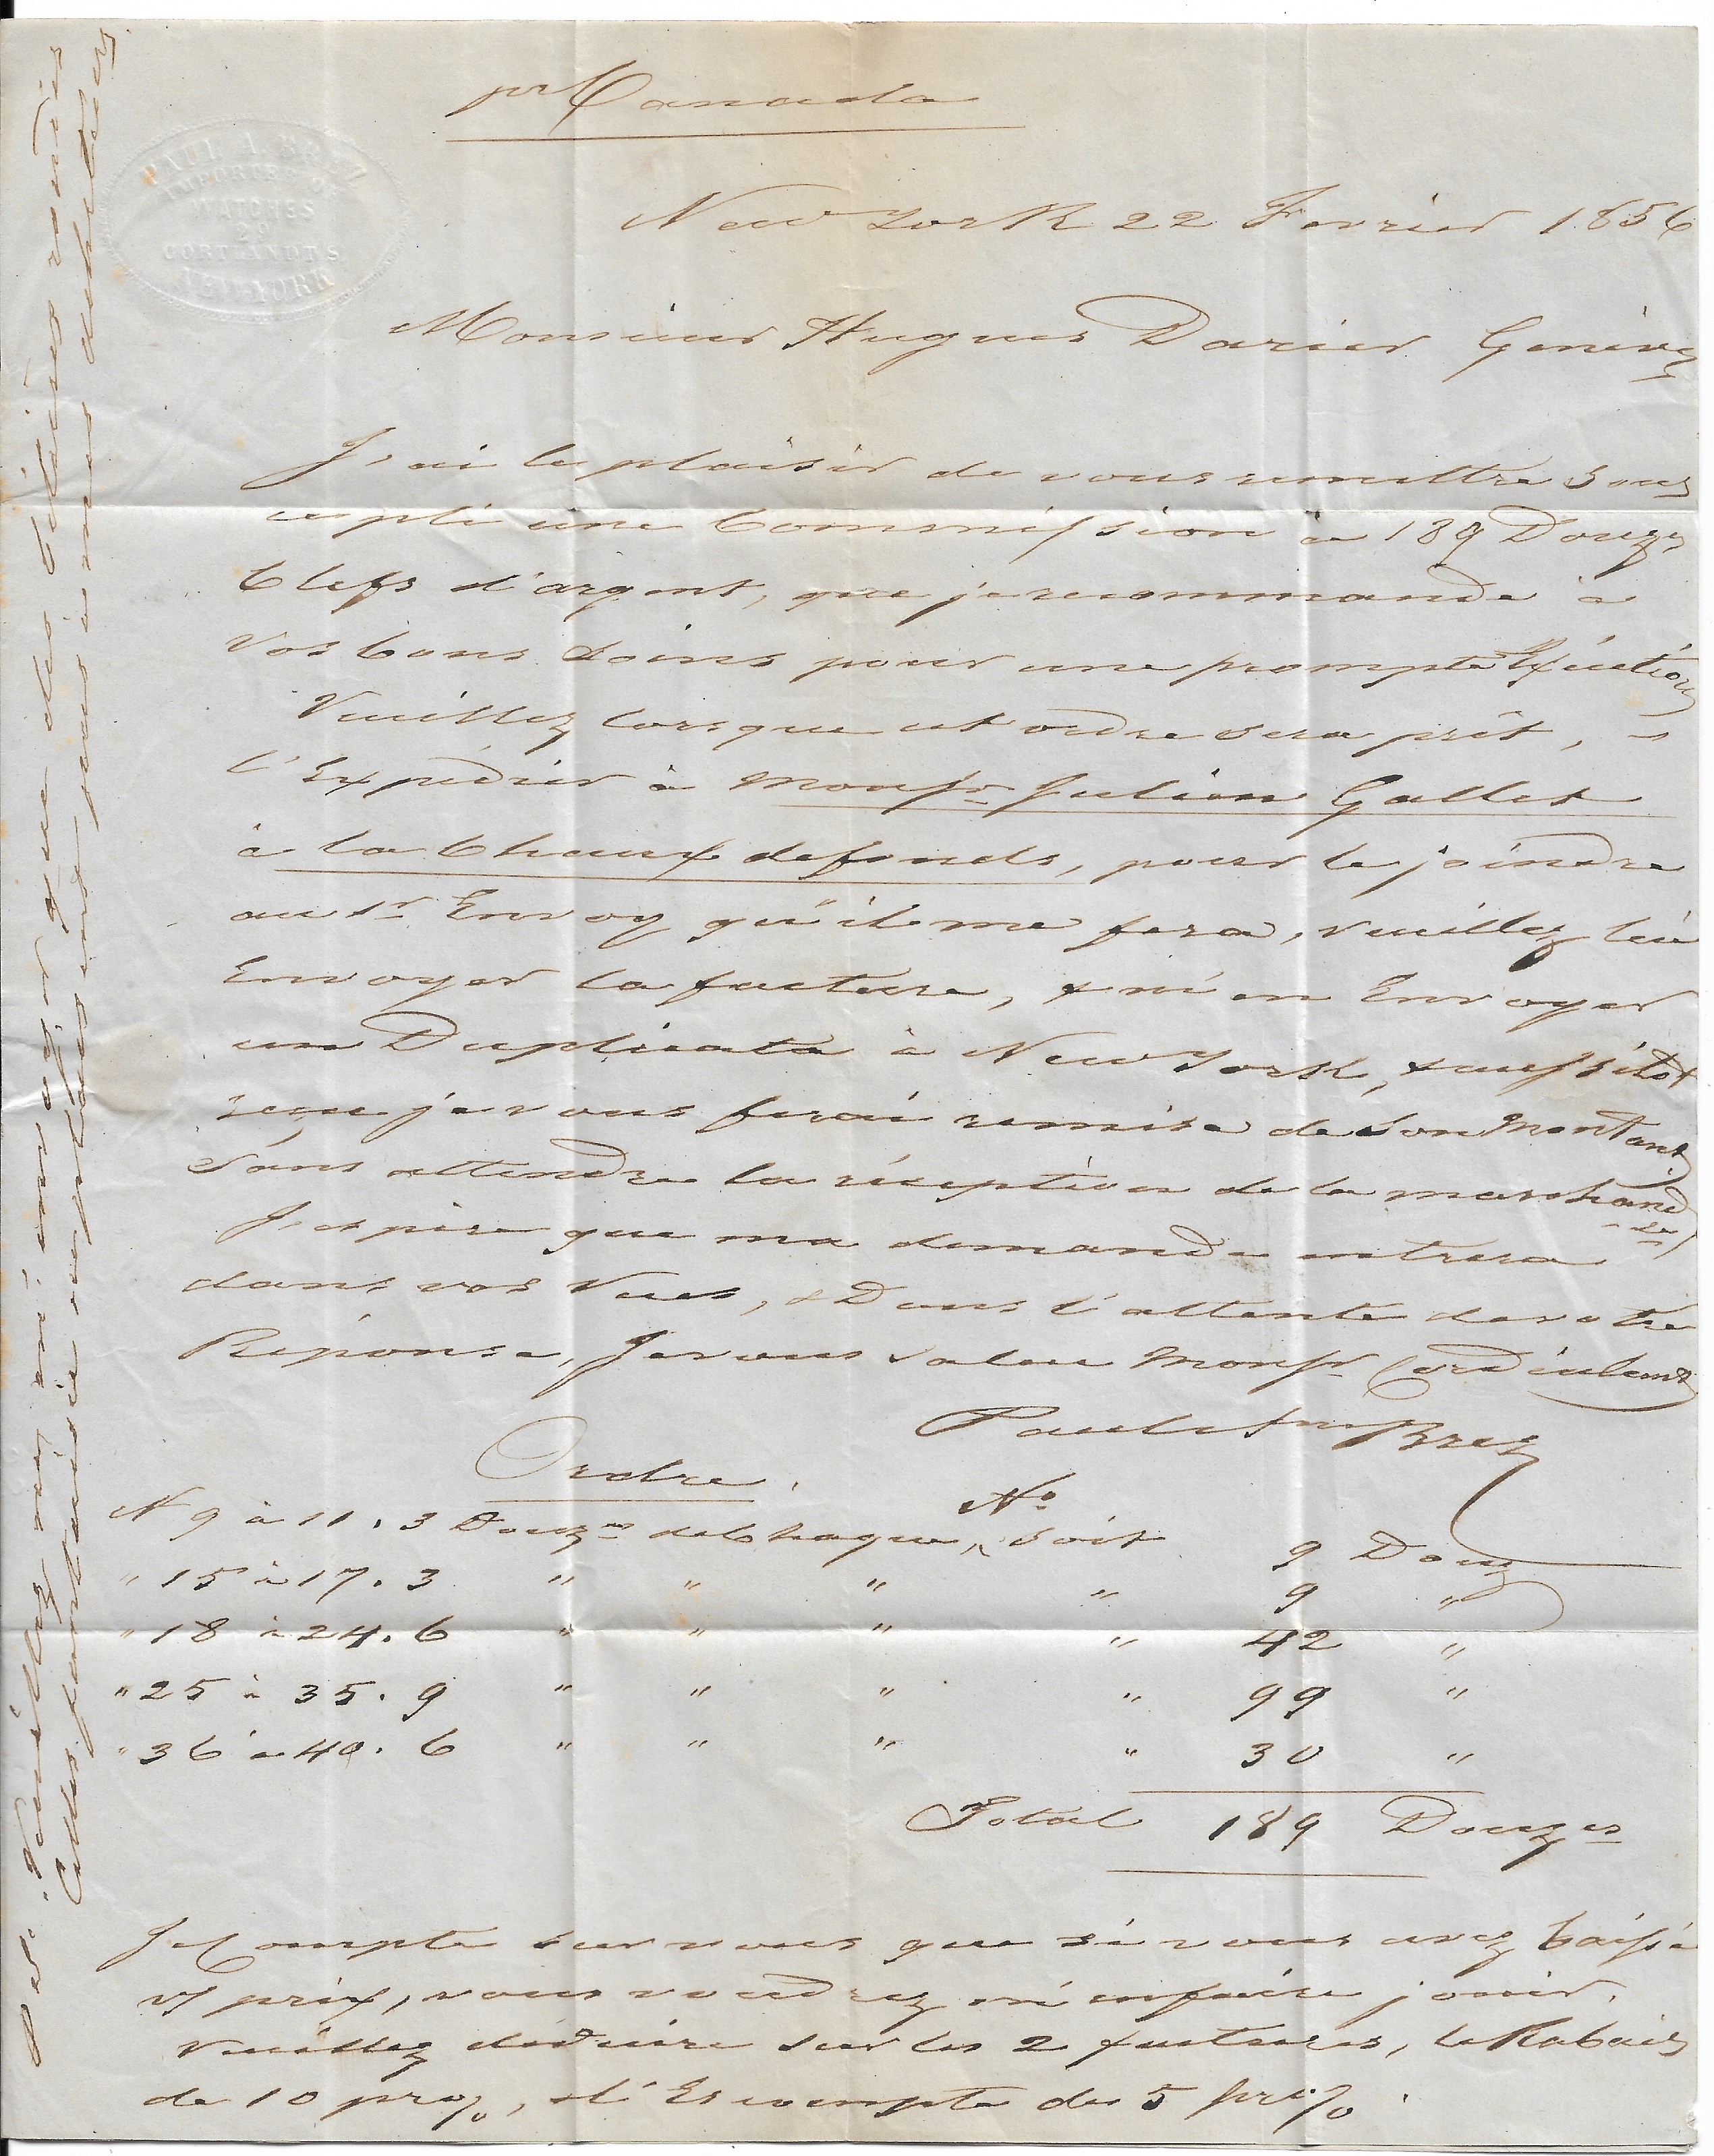 pr Canada
PAUL A. BREZ
IMPORTER OF
WATCHES
29
CORTLANDT S.
NEW-YORK
New York 22 Fevrier 1856
Monsieur Hugues Darier Genève
J'ai le plaisir de vous remettre sous
ce pli une Commission de 189 Douzes
Clefs d'argent, que je recommande à
vos bons soins pour une prompte Exécution
Veuillez lorsque cet ordre sera prêt, -
l'Expédier à Monsr Julien Gallet
à la Chaux de fonds, pour le joindre
au 1r Envoy qu'il me fera, veuillez lui
Envoyer la facture, & m'en Envoyer
un Duplicata à New York, & aussitot
reçu je vous ferai remise de son Montant
sans attendre la réception de la marchand
ise
J'espère que ma demande entrera
dans vos vues, & Dans l'attente de votre
Réponse, Je vous salue Monsr Cordialemt
Paul Brez
Ordre.
No
N 9 à 11. 3 Douzes de Chaque, soit 9 Douz
" 15 à 17. 3 " " " " 9 "
" 18 à 24. 6 " " " " 42 "
" 25 à 35. 9 " " " " 99 "
" 36 à 40. 6 " " " " 30 "
Total 189 Douzes
Je Compte sur vous que si vous avez baissé
vs prix, vous voudrez m'en faire jouir.
Veuillez déduire sur les 2 factures, le Rabais
de 10 pr %, & l'Escompte de 5 pr %.
P.S. Veuillez ne m'envoyer que des
Clefs